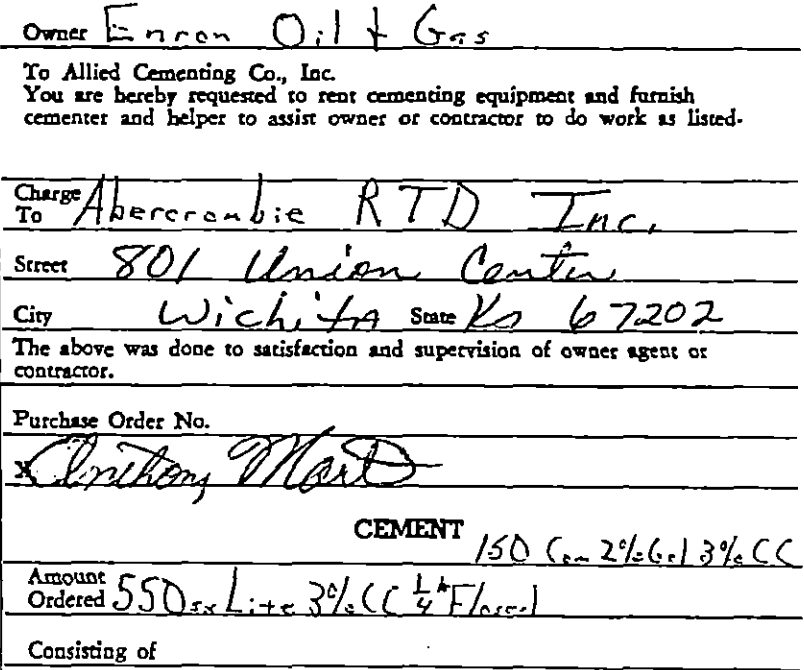 Owner Enron Oil & Gas
To Allied Cementing Co., Inc.
You are hereby requested to rent cementing equipment and furnish
cementer and helper to assist owner or contractor to do work as listed.
Charge To Abercrombie RTD Inc.
Street 801 Union Center
City Wichita State Ks 67202
The above was done to satisfaction and supervision of owner agent or
contractor.
Purchase Order No.
X Anthony
CEMENT
150 Com 2% Gel 3% CC
Amount Ordered 550 sx Lite 3% CC 1/4# Flocel
Consisting of